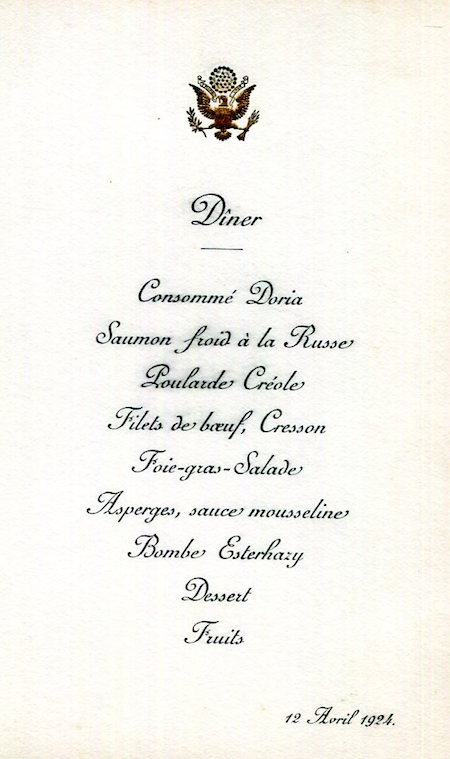 Dîner
Consommé Doria
Saumon froid à la Russe
Poularde Créole
Filets de bœuf, Cresson
Foie-gras-Salade
Asperges, sauce mousseline
Bombe Esterhazy
Dessert
Fruits
12 Avril 1924.